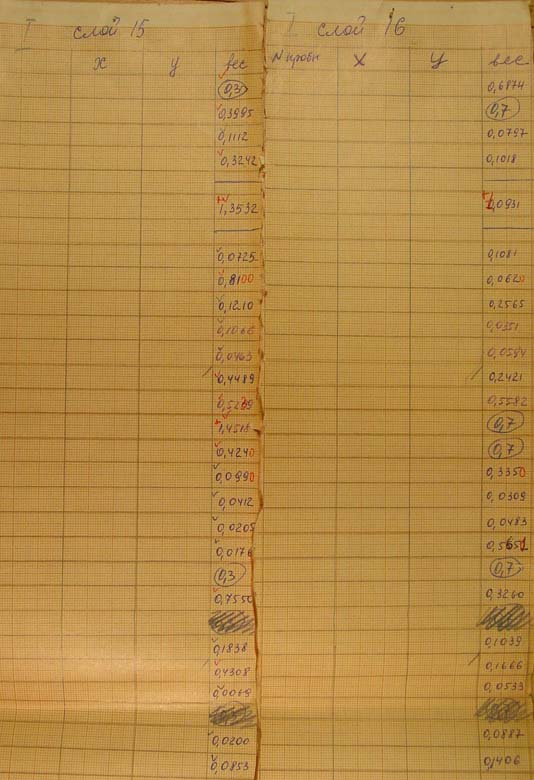 I слой 15
x y вес
0,3
0,3995
0,1112
0,3242
1,3532
0,0725
0,8100
0,1210
0,1066
0,0463
0,4489
0,4240
0,0990
0,0412
0,0205
0,0176
0,3
0,7550
0,1838
0,4308
0,0069
0,0200
0,0853
I слой 16
N пробы x y вес
0,6874
0,7
0,0797
0,1018
1,0931
0,1081
0,0620
0,2565
0,0351
0,0594
0,2421
0,5582
0,7
0,7
0,3350
0,0309
0,0483
0,7
0,3260
0,1039
0,1666
0,0533
0,0887
0,1406